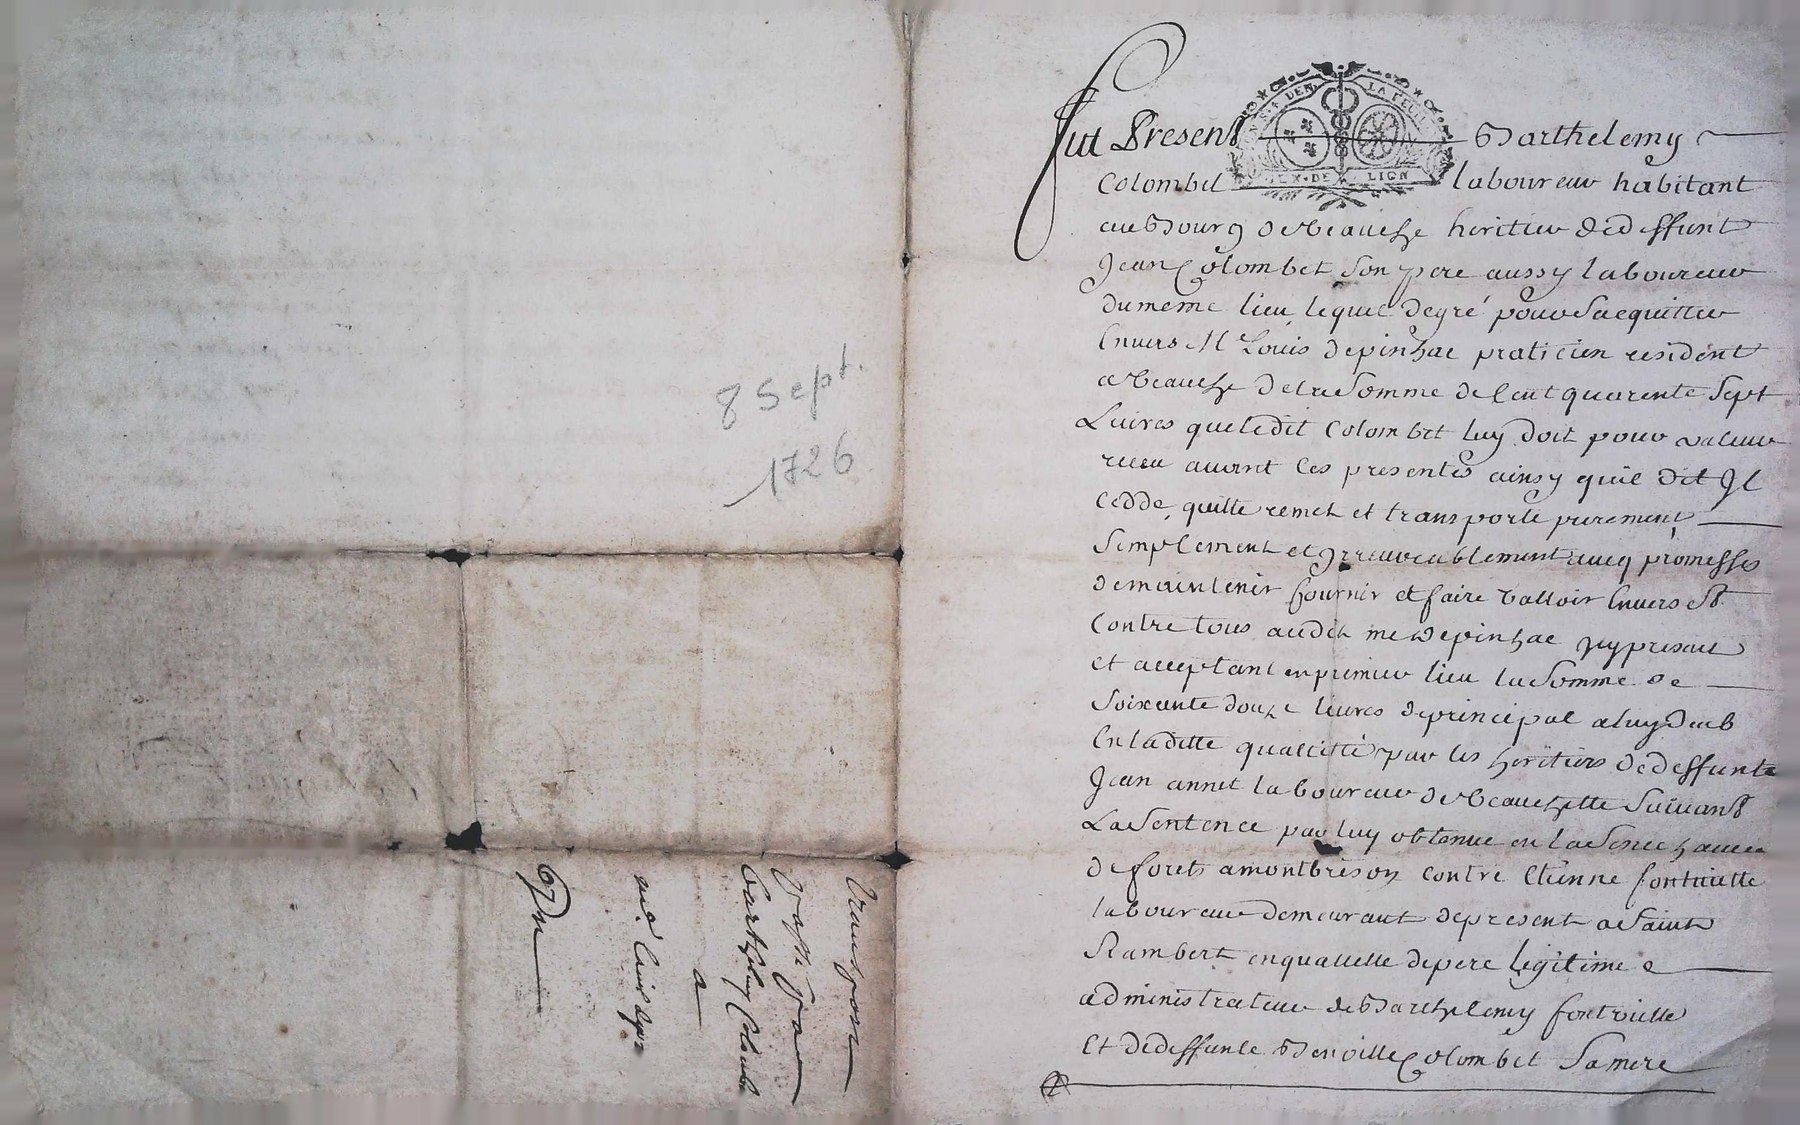 8 Sept.
1726
Transport
a
67
Fut Present Barthelemy
GEN
LA FEUIL
DEUX DE LION
Colombet laboureur habitant
au Bourg de heritier de deffunt
Jean Colombet son pere aussy laboureur
du meme lieu lequel de gré pour sacquitter
Envers M Louis depinhac praticien resident
a de la somme de Cent quarente sept
Livres que ledit Colombet luy doit pour valeur
receu avant ces presentes ainsy quil dit Jl
cedde quitte remet et transporte purement
Simplement et Jrrevocablement avecq promesses
de maintenir fournir et faire valloir Envers et
Contre tous audit me depinhac jcy present
et acceptant en premier lieu la somme de
Soixante douze livres de principal a luy deub
En laditte quallitté par les heritiers de deffunte
Jean annet laboureur de suivant
La Sentence par luy obtenue en la Senechaucee
de forets a montbrison contre Etienne fontvielle
laboureur demeurant de present a Saint
Rambert en quallitte de pere legitime e
administrateur de Barthelemy fontvielle
Et de deffunte Colombet sa mere